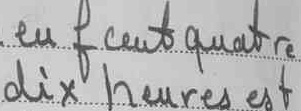 euf cent quatre
dix heures est